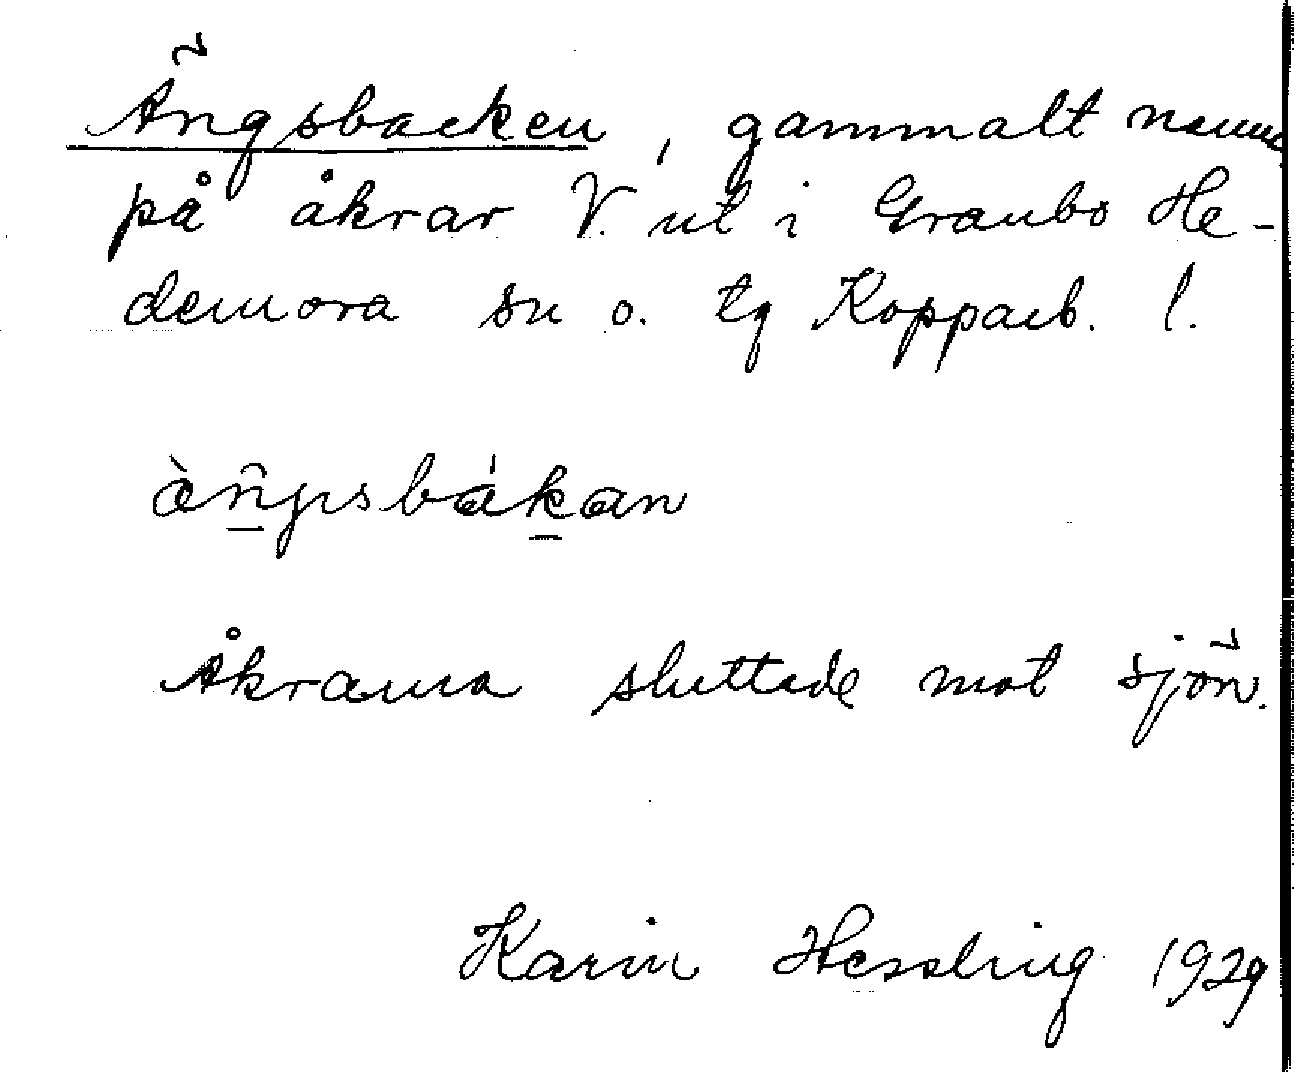 Ängsbacken, gammalt namn
på åkrar V. ut i Graubo He-
demora sn o. tg Kopparb. l.
Åkrarna sluttade mot sjön.
Karin Hessling 1929